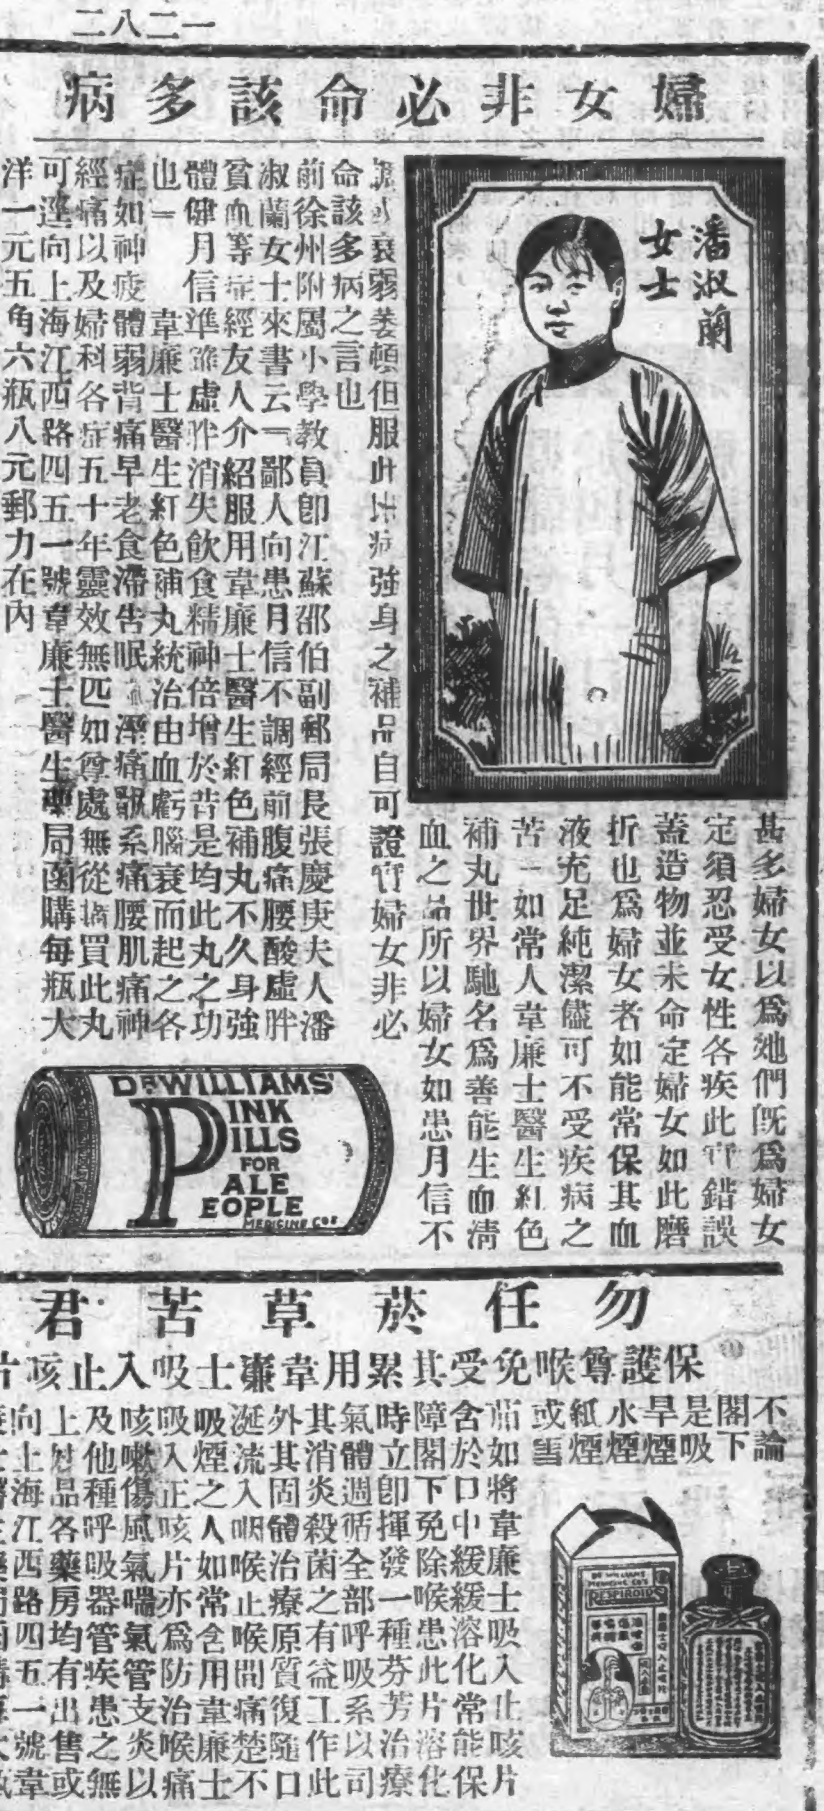 一二八二
婦女非必命該多病
潘淑蘭
女士
甚多婦女以爲她們旣爲婦女
定須忍受女性各疾此實錯誤
蓋造物並未命定婦女如此磨
折也爲婦女者如能常保其血
液充足純潔儘可不受疾病之
苦一如常人韋廉士醫生紅色
補丸世界馳名爲善能生血清
血之品所以婦女如患月信不
調或衰弱萎頓但服此祛病強身之補品自可證實婦女非必
命該多病之言也
前徐州附屬小學教員卽江蘇邵伯副郵局長張慶庚夫人潘
淑蘭女士來書云=鄙人向患月信不調經前腹痛腰酸虛胖
貧血等症經友人介紹服用韋廉士醫生紅色補丸不久身強
體健月信準確虛胖消失飲食精神倍增於昔是均此丸之功
也= 韋廉士醫生紅色補丸統治由血虧腦衰而起之各
症如神疲體弱背痛早老食滯眠痛系痛腰肌痛神
經痛以及婦科各症五十年靈效無匹如尊處無從購買此丸
可逕向上海江西路四五一號韋廉士醫生藥局函購每瓶大
洋一元五角六瓶八元郵力在內
DR WILLIAMS'
PINK
PILLS
FOR
PALE
PEOPLE
MEDICINE CO'S
勿任菸草苦君
保護尊喉免受其累用韋廉士吸入止咳片
不論
閣下
是吸
旱煙
水煙
紙煙
或雪
茄如將韋廉士吸入止咳片
含於口中緩緩溶化常能保
障閣下免除喉患此片溶化
時立卽揮發一種芬芳治療
氣體週循全部呼吸系以司
其消炎殺菌之有益工作此
外其固體治療原質復隨口
涎流入咽喉止喉間痛楚不
吸煙之人如常含用韋廉士
吸入止咳片亦爲防治喉痛
咳嗽傷風氣喘氣管支炎以
及他種呼吸器管疾患之無
上妙品各藥房均有出售或
向上海江西路四五一號韋
DR WILLIAMS
MEDICINE CO'S
RESPIROIDS